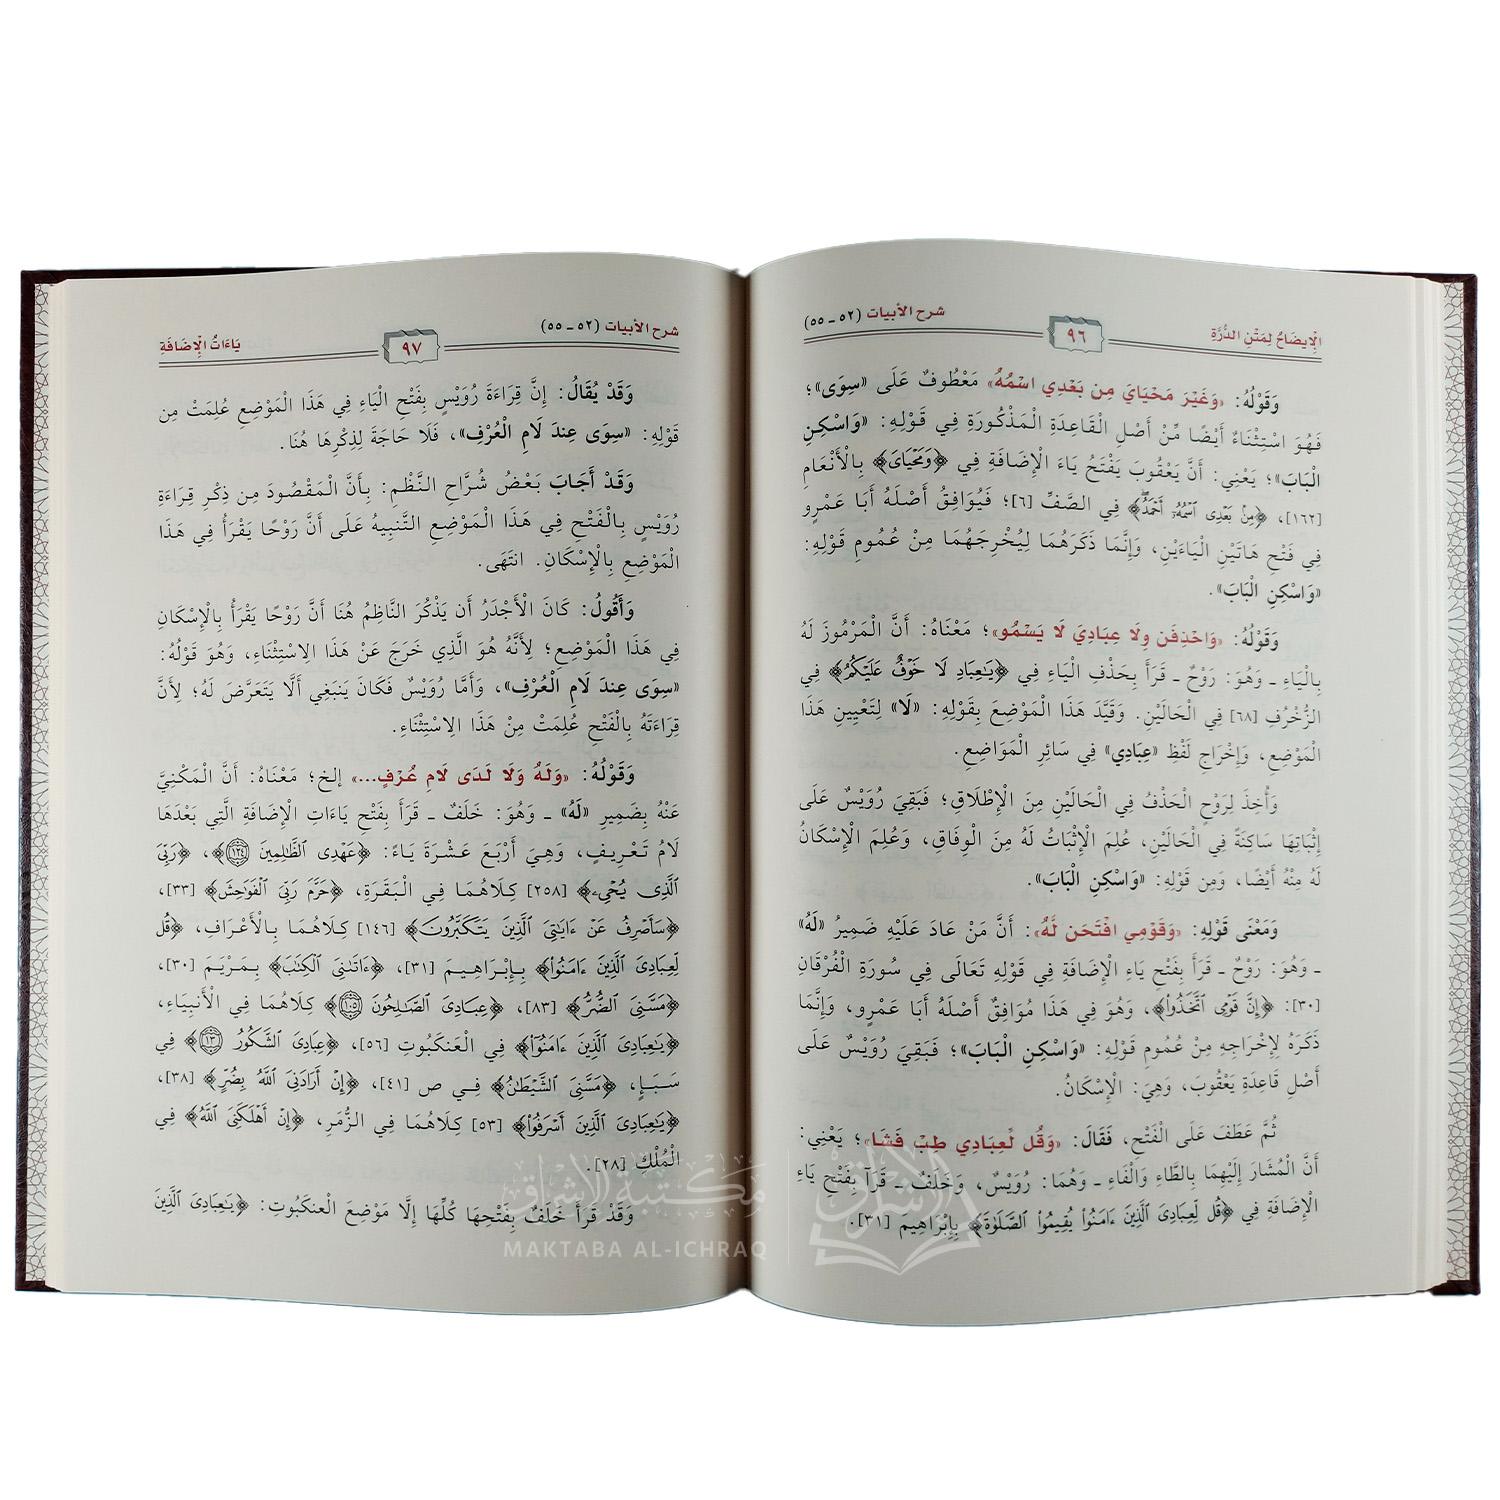 الْإِيضَاحُ لِمَتْنِ الدُّرَّةِ
٩٦
شرح الأبيات (٥٢ ـ ٥٥)
وَقَوْلُهُ: «وَغَيْرَ مَحْيَايَ مِن بَعْدِي اسْمُهُ» مَعْطُوفٌ عَلَى «سِوَى»؛
فَهُوَ اسْتِثْنَاءٌ أَيْضًا مِّنْ أَصْلِ الْقَاعِدَةِ الْمَذْكُورَةِ فِي قَوْلِهِ: «وَاسْكِنِ
الْبَابَ»؛ يَعْنِي: أَنَّ يَعْقُوبَ يَفْتَحُ يَاءَ الْإِضَافَةِ فِي ﴿وَمَحْيَايَ﴾ بِالْأَنْعَامِ
[١٦٢]، ﴿مِنۢ بَعْدِى ٱسْمُهُۥٓ أَحْمَدُ﴾ فِي الصَّفِّ [٦]؛ فَيُوَافِقُ أَصْلَهُ أَبَا عَمْرٍو
فِي فَتْحِ هَاتَيْنِ الْيَاءَيْنِ، وَإِنَّمَا ذَكَرَهُمَا لِيُخْرِجَهُمَا مِنْ عُمُومِ قَوْلِهِ:
«وَاسْكِنِ الْبَابَ».
وَقَوْلُهُ: «وَاحْذِفَن وِلَا عِبَادِيَ لَا يَسْمُو»؛ مَعْنَاهُ: أَنَّ الْمَرْمُوزَ لَهُ
بِالْيَاءِ ـ وَهُوَ: رَوْحٌ ـ قَرَأَ بِحَذْفِ الْيَاءِ فِي ﴿يَٰعِبَادِ لَا خَوْفٌ عَلَيْكُمُ﴾ فِي
الزُّخْرُفِ [٦٨] فِي الْحَالَيْنِ. وَقَيَّدَ هَذَا الْمَوْضِعَ بِقَوْلِهِ: «لَا» لِتَعْيِينِ هَذَا
الْمَوْضِعِ، وَإِخْرَاجِ لَفْظِ «عِبَادِي» فِي سَائِرِ الْمَوَاضِعِ.
وَأُخِذَ لِرَوْحٍ الْحَذْفُ فِي الْحَالَيْنِ مِنَ الْإِطْلَاقِ؛ فَبَقِيَ رُوَيْسٌ عَلَى
إِثْبَاتِهَا سَاكِنَةً فِي الْحَالَيْنِ، عُلِمَ الْإِثْبَاتُ لَهُ مِنَ الْوِفَاقِ، وَعُلِمَ الْإِسْكَانُ
لَهُ مِنْهُ أَيْضًا، وَمِن قَوْلِهِ: «وَاسْكِنِ الْبَابَ».
وَمَعْنَى قَوْلِهِ: «وَقَوْمِي افْتَحَن لَّهُ»: أَنَّ مَنْ عَادَ عَلَيْهِ ضَمِيرُ «لَهُ»
ـ وَهُوَ: رَوْحٌ ـ قَرَأَ بِفَتْحِ يَاءِ الْإِضَافَةِ فِي قَوْلِهِ تَعَالَى فِي سُورَةِ الْفُرْقَانِ
[٣٠]: ﴿إِنَّ قَوْمِيَ ٱتَّخَذُوا۟﴾، وَهُوَ فِي هَذَا مُوَافِقٌ أَصْلَهُ أَبَا عَمْرٍو، وَإِنَّمَا
ذَكَرَهُ لِإِخْرَاجِهِ مِنْ عُمُومِ قَوْلِهِ: «وَاسْكِنِ الْبَابَ»؛ فَبَقِيَ رُوَيْسٌ عَلَى
أَصْلِ قَاعِدَةِ يَعْقُوبَ، وَهِيَ: الْإِسْكَانُ.
ثُمَّ عَطَفَ عَلَى الْفَتْحِ، فَقَالَ: «وَقُل لِّعِبَادِي طِبْ فَشَا»؛ يَعْنِي:
أَنَّ الْمُشَارَ إِلَيْهِمَا بِالطَّاءِ وَالْفَاءِ ـ وَهُمَا: رُوَيْسٌ، وَخَلَفٌ ـ قَرَآ بِفَتْحِ يَاءِ
الْإِضَافَةِ فِي ﴿قُل لِّعِبَادِىَ ٱلَّذِينَ ءَامَنُوا۟ يُقِيمُوا۟ ٱلصَّلَوٰةَ﴾ بِإِبْرَاهِيمَ [٣١].
شرح الأبيات (٥٢ ـ ٥٥)
٩٧
يَاءَاتُ الْإِضَافَةِ
وَقَدْ يُقَالُ: إِنَّ قِرَاءَةَ رُوَيْسٍ بِفَتْحِ الْيَاءِ فِي هَذَا الْمَوْضِعِ عُلِمَتْ مِن
قَوْلِهِ: «سِوَى عِندَ لَامِ الْعُرْفِ»، فَلَا حَاجَةَ لِذِكْرِهَا هُنَا.
وَقَدْ أَجَابَ بَعْضُ شُرَّاحِ النَّظْمِ: بِأَنَّ الْمَقْصُودَ مِن ذِكْرِ قِرَاءَةِ
رُوَيْسٍ بِالْفَتْحِ فِي هَذَا الْمَوْضِعِ التَّنبِيهُ عَلَى أَنَّ رَوْحًا يَقْرَأُ فِي هَذَا
الْمَوْضِعِ بِالْإِسْكَانِ. انتَهَى.
وَأَقُولُ: كَانَ الْأَجْدَرُ أَن يَذْكُرَ النَّاظِمُ هُنَا أَنَّ رَوْحًا يَقْرَأُ بِالْإِسْكَانِ
فِي هَذَا الْمَوْضِعِ؛ لِأَنَّهُ هُوَ الَّذِي خَرَجَ عَنْ هَذَا الِاسْتِثْنَاءِ، وَهُوَ قَوْلُهُ:
«سِوَى عِندَ لَامِ الْعُرْفِ»، وَأَمَّا رُوَيْسٌ فَكَانَ يَنبَغِي أَلَّا يَتَعَرَّضَ لَهُ؛ لِأَنَّ
قِرَاءَتَهُ بِالْفَتْحِ عُلِمَتْ مِنْ هَذَا الِاسْتِثْنَاءِ.
وَقَوْلُهُ: «وَلَهُ وَلَا لَدَى لَامِ عُرْفٍ...» إلخ؛ مَعْنَاهُ: أَنَّ الْمَكْنِيَّ
عَنْهُ بِضَمِيرِ «لَهُ» ـ وَهُوَ: خَلَفٌ ـ قَرَأَ بِفَتْحِ يَاءَاتِ الْإِضَافَةِ الَّتِي بَعْدَهَا
لَامُ تَعْرِيفٍ، وَهِيَ أَرْبَعَ عَشْرَةَ يَاءً: ﴿عَهْدِى ٱلظَّٰلِمِينَ ١٢٤﴾، ﴿رَبِّىَ
ٱلَّذِى يُحْىِۦ﴾ [٢٥٨] كِلَاهُمَا فِي الْبَقَرَةِ، ﴿حَرَّمَ رَبِّىَ ٱلْفَوَٰحِشَ﴾ [٣٣]،
﴿سَأَصْرِفُ عَنْ ءَايَٰتِىَ ٱلَّذِينَ يَتَكَبَّرُونَ﴾ [١٤٦] كِلَاهُمَا بِالْأَعْرَافِ، ﴿قُل
لِّعِبَادِىَ ٱلَّذِينَ ءَامَنُوا۟﴾ بِإِبْرَاهِيمَ [٣١]، ﴿ءَاتَىٰنِىَ ٱلْكِتَٰبَ﴾ بِمَرْيَمَ [٣٠]،
﴿مَسَّنِىَ ٱلضُّرُّ﴾ [٨٣]، ﴿عِبَادِىَ ٱلصَّٰلِحُونَ ١٠٥﴾ كِلَاهُمَا فِي الْأَنبِيَاءِ،
﴿يَٰعِبَادِىَ ٱلَّذِينَ ءَامَنُوٓا۟﴾ فِي الْعَنكَبُوتِ [٥٦]، ﴿عِبَادِىَ ٱلشَّكُورُ ١٣﴾ فِي
سَبَإٍ، ﴿مَسَّنِىَ ٱلشَّيْطَٰنُ﴾ فِي ص [٤١]، ﴿إِنْ أَرَادَنِىَ ٱللَّهُ بِضُرٍّ﴾ [٣٨]،
﴿يَٰعِبَادِىَ ٱلَّذِينَ أَسْرَفُوا۟﴾ [٥٣] كِلَاهُمَا فِي الزُّمَرِ، ﴿إِنْ أَهْلَكَنِىَ ٱللَّهُ﴾ فِي
الْمُلْكِ [٢٨].
وَقَدْ قَرَأَ خَلَفٌ بِفَتْحِهَا كُلِّهَا إِلَّا مَوْضِعَ الْعنكَبُوتِ: ﴿يَٰعِبَادِىَ ٱلَّذِينَ
مكتبة الإشراق
MAKTABA AL-ICHRAQ
الإشراق